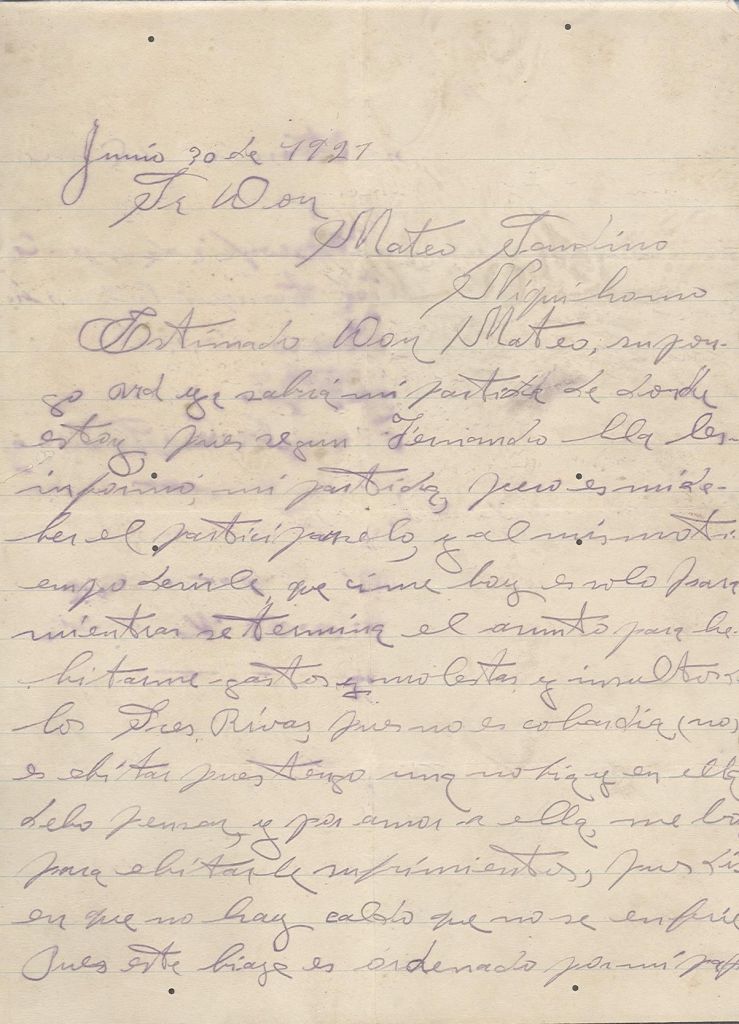 Junio 30 de 1921
Sr Don
Mateo
Niquihomo
Estimado Don Mateo, supon-
go Ud ya sabrá mi partida de donde
estoy pues segun Fernando lla les
informó, mi partida, pero es mi de-
ber el participarselo, y al mismo ti-
empo desirle, que si me boy es solo para
mientras se termina el asunto para he-
bitarme gastos y molestas y insultos d
los Sres, Rivas, pues no es cobardia, (no)
es ebitar pues tengo una nobia y en ella
debo pensar, y por amor a ella, me bo
para ebitarle sufrimientos, pues dis
en que no hay caldo que no se enfrie
Pues este biage es ordenado por mi pap